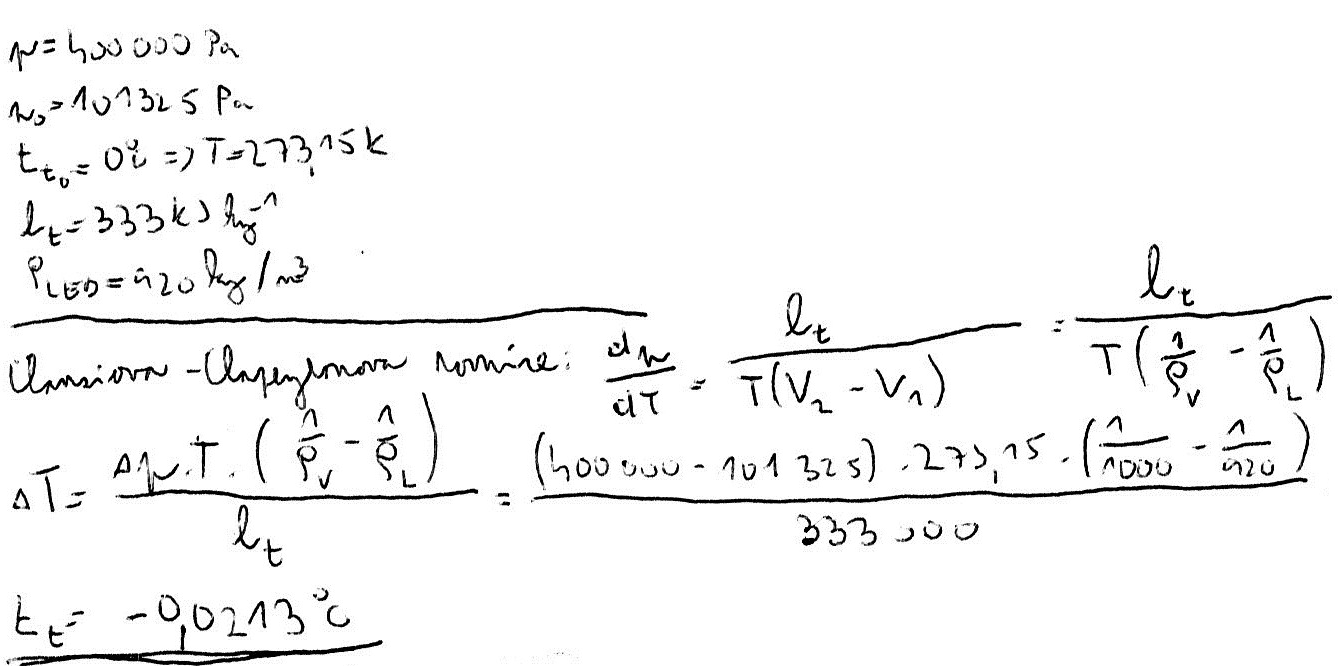 p = 400 000 Pa
p₀ = 101325 Pa
t_t₀ = 0°C => T = 273,15 K
l_t = 333 kJ kg⁻¹
ρ_LED = 920 kg/m³
Clausiova - Clapeyronova rovnice: dp/dT = l_t / T(V₂ - V₁) = l_t / T(1/ρ_V - 1/ρ_L)
ΔT = Δp.T.(1/ρ_V - 1/ρ_L) / l_t = (400 000 - 101 325) . 273,15 . (1/1000 - 1/920) / 333 000
t_t = -0,0213°C